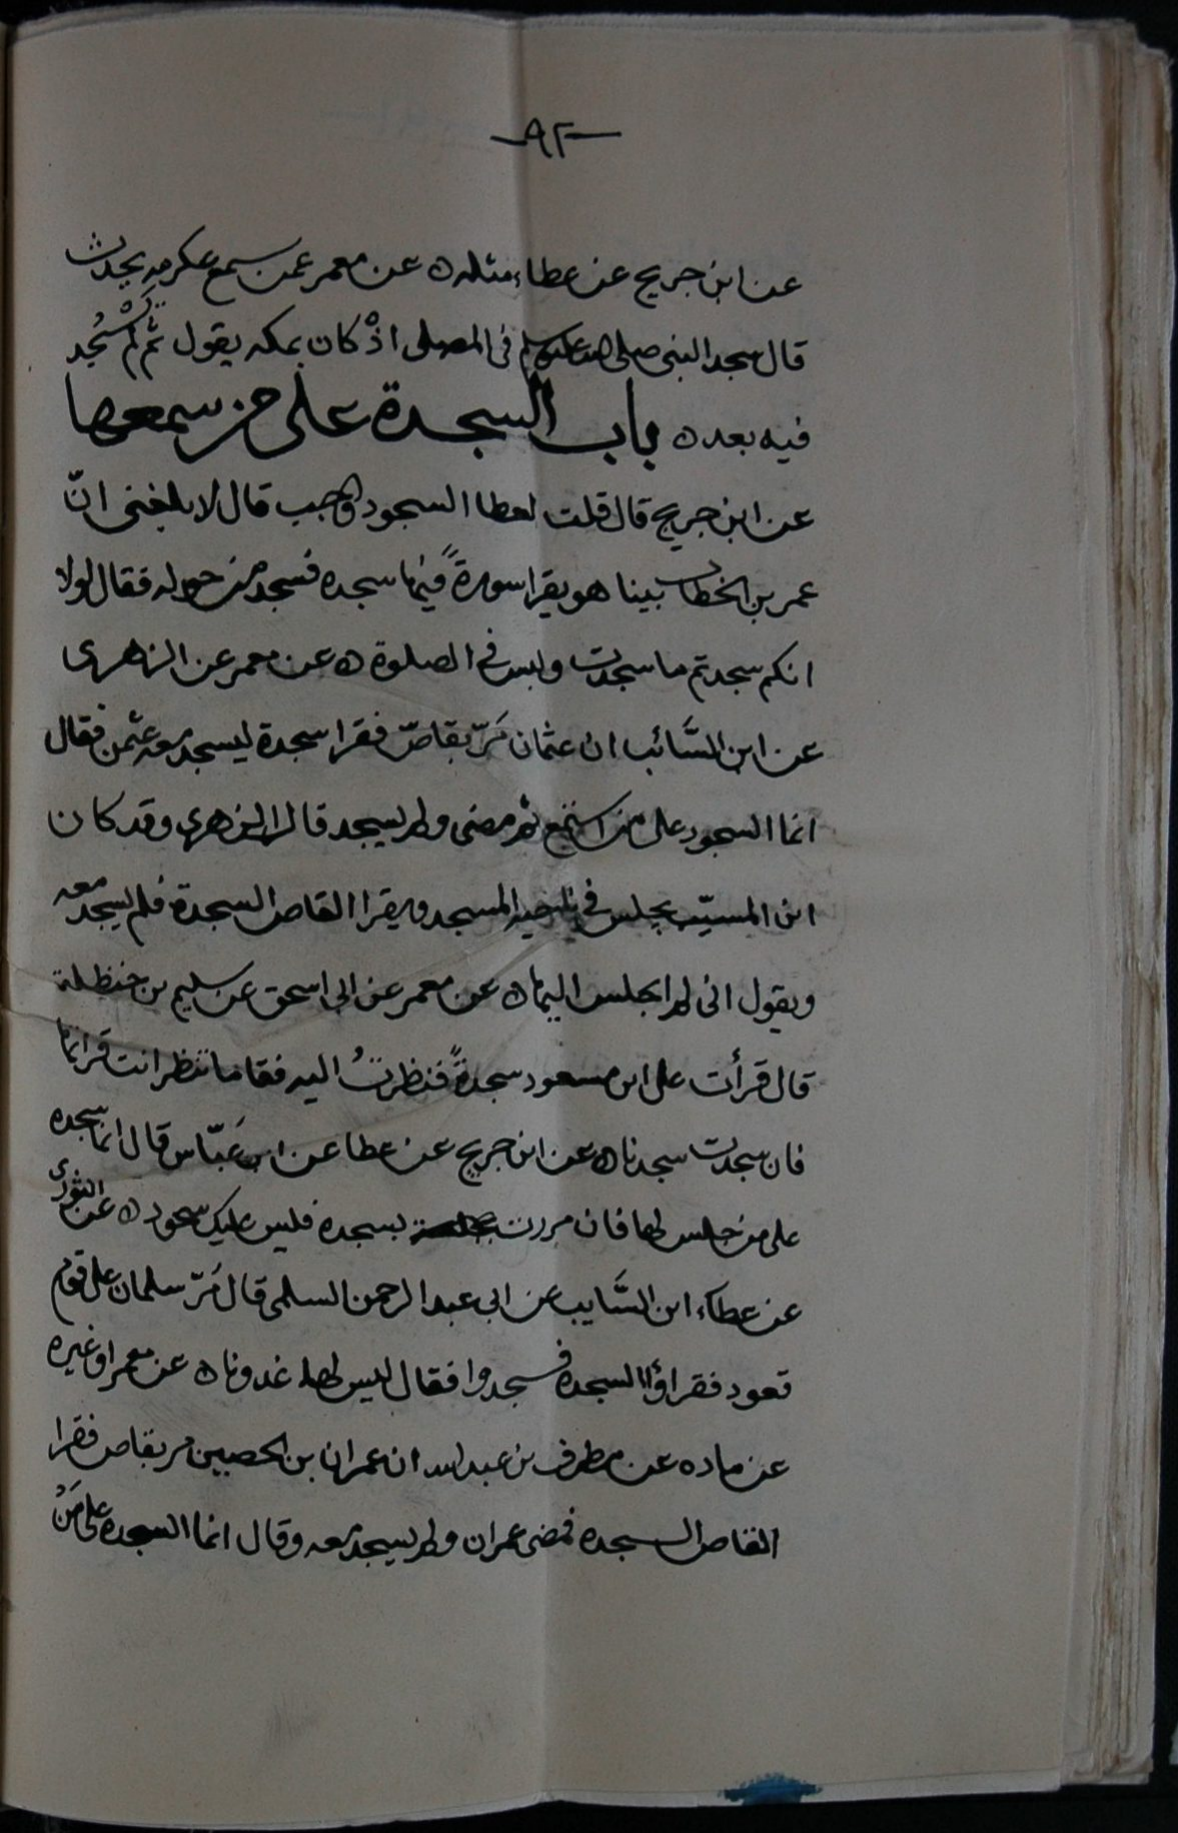 -٩٢-
عن ابن جريج عن عطاء مثله ٥ عن معمر عمن سمع عكرمه يحدث
قال سجد النبى صلى الله عليه وسلم فى المصلى اذْ كان بمكه يقول ثم لم يَسْجُد
فيه بعد ٥ باب السجدة على من سمعها
عن ابن جريج قال قلت لعطا السجود واجب قال لا بلغنى انّ
عمر بن الخطاب بينا هو يقرا سورةً فيها سجده فسجد من حوله فقال لولا
انكم سجدتم ما سجدت وليس فى الصلوة ٥ عن معمر عن الزهرى
عن ابن السَّائب ان عثمان مَرّ بقاصّ فقرا سجدة ليسجد معه عثمن فقال
انما السجود على من استمع ثم مضى ولم يسجد قال الزهرى وقد كان
ابن المسيّب يجلس فى ناحية المسجد ويقرا القاص السجدة فلم يسجد معه
ويقول انى لم اجلس اليها ٥ عن معمر عن ابى اسحق عن سليم بن حنظلة
قال قرأت على ابن مسعود سجدةً فنظرتُ اليه فقا ما تنظر انت قراتها
فان سجدت سجدنا ٥ عن ابن جريج عن عطا عن ابن عَبّاس قال انما سجده
على من جلس لها فان مررت بسجده فليس عليك سجود ٥ عن الثورى
عن عطاء ابن السَّايب عن ابى عبد الرحمن السلمى قال مَرّ سلمان على قوم
قعود فقراؤا السجده فسجدوا فقال ليس لها غدونا ٥ عن معمر او غيره
عن ماده عن مطرف بن عبد الله ان عمران بن الحصين مر بقاص فقرا
القاص السجده فمضى عمران ولم يسجد معه وقال انما السجده على مَنْ